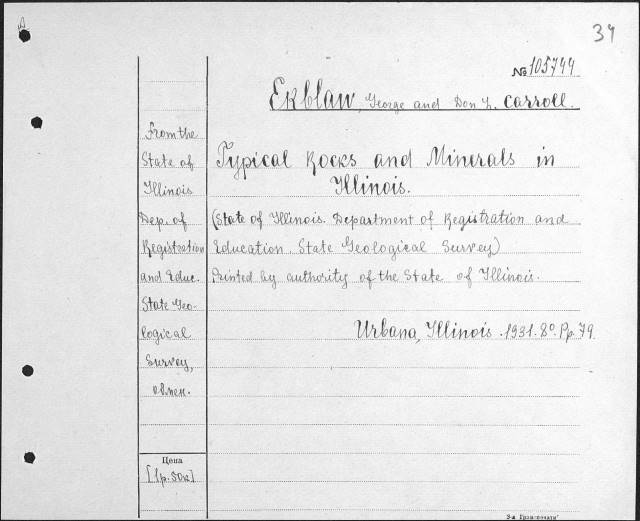 34
№ 105744
Ekblaw, George and Don L. Carroll.
Typical Rocks and Minerals in
Illinois.
(State of Illinois. Department of Registration and
Education. State Geological Survey)
Printed by authority of the State of Illinois.
Urbana, Illinois. 1931. 8°. Pp. 79
From the
State of
Illinois
Dep. of
Registration
and Educ.
State Geo-
logical
Survey,
обмен.
Цена
[1р. 50к]